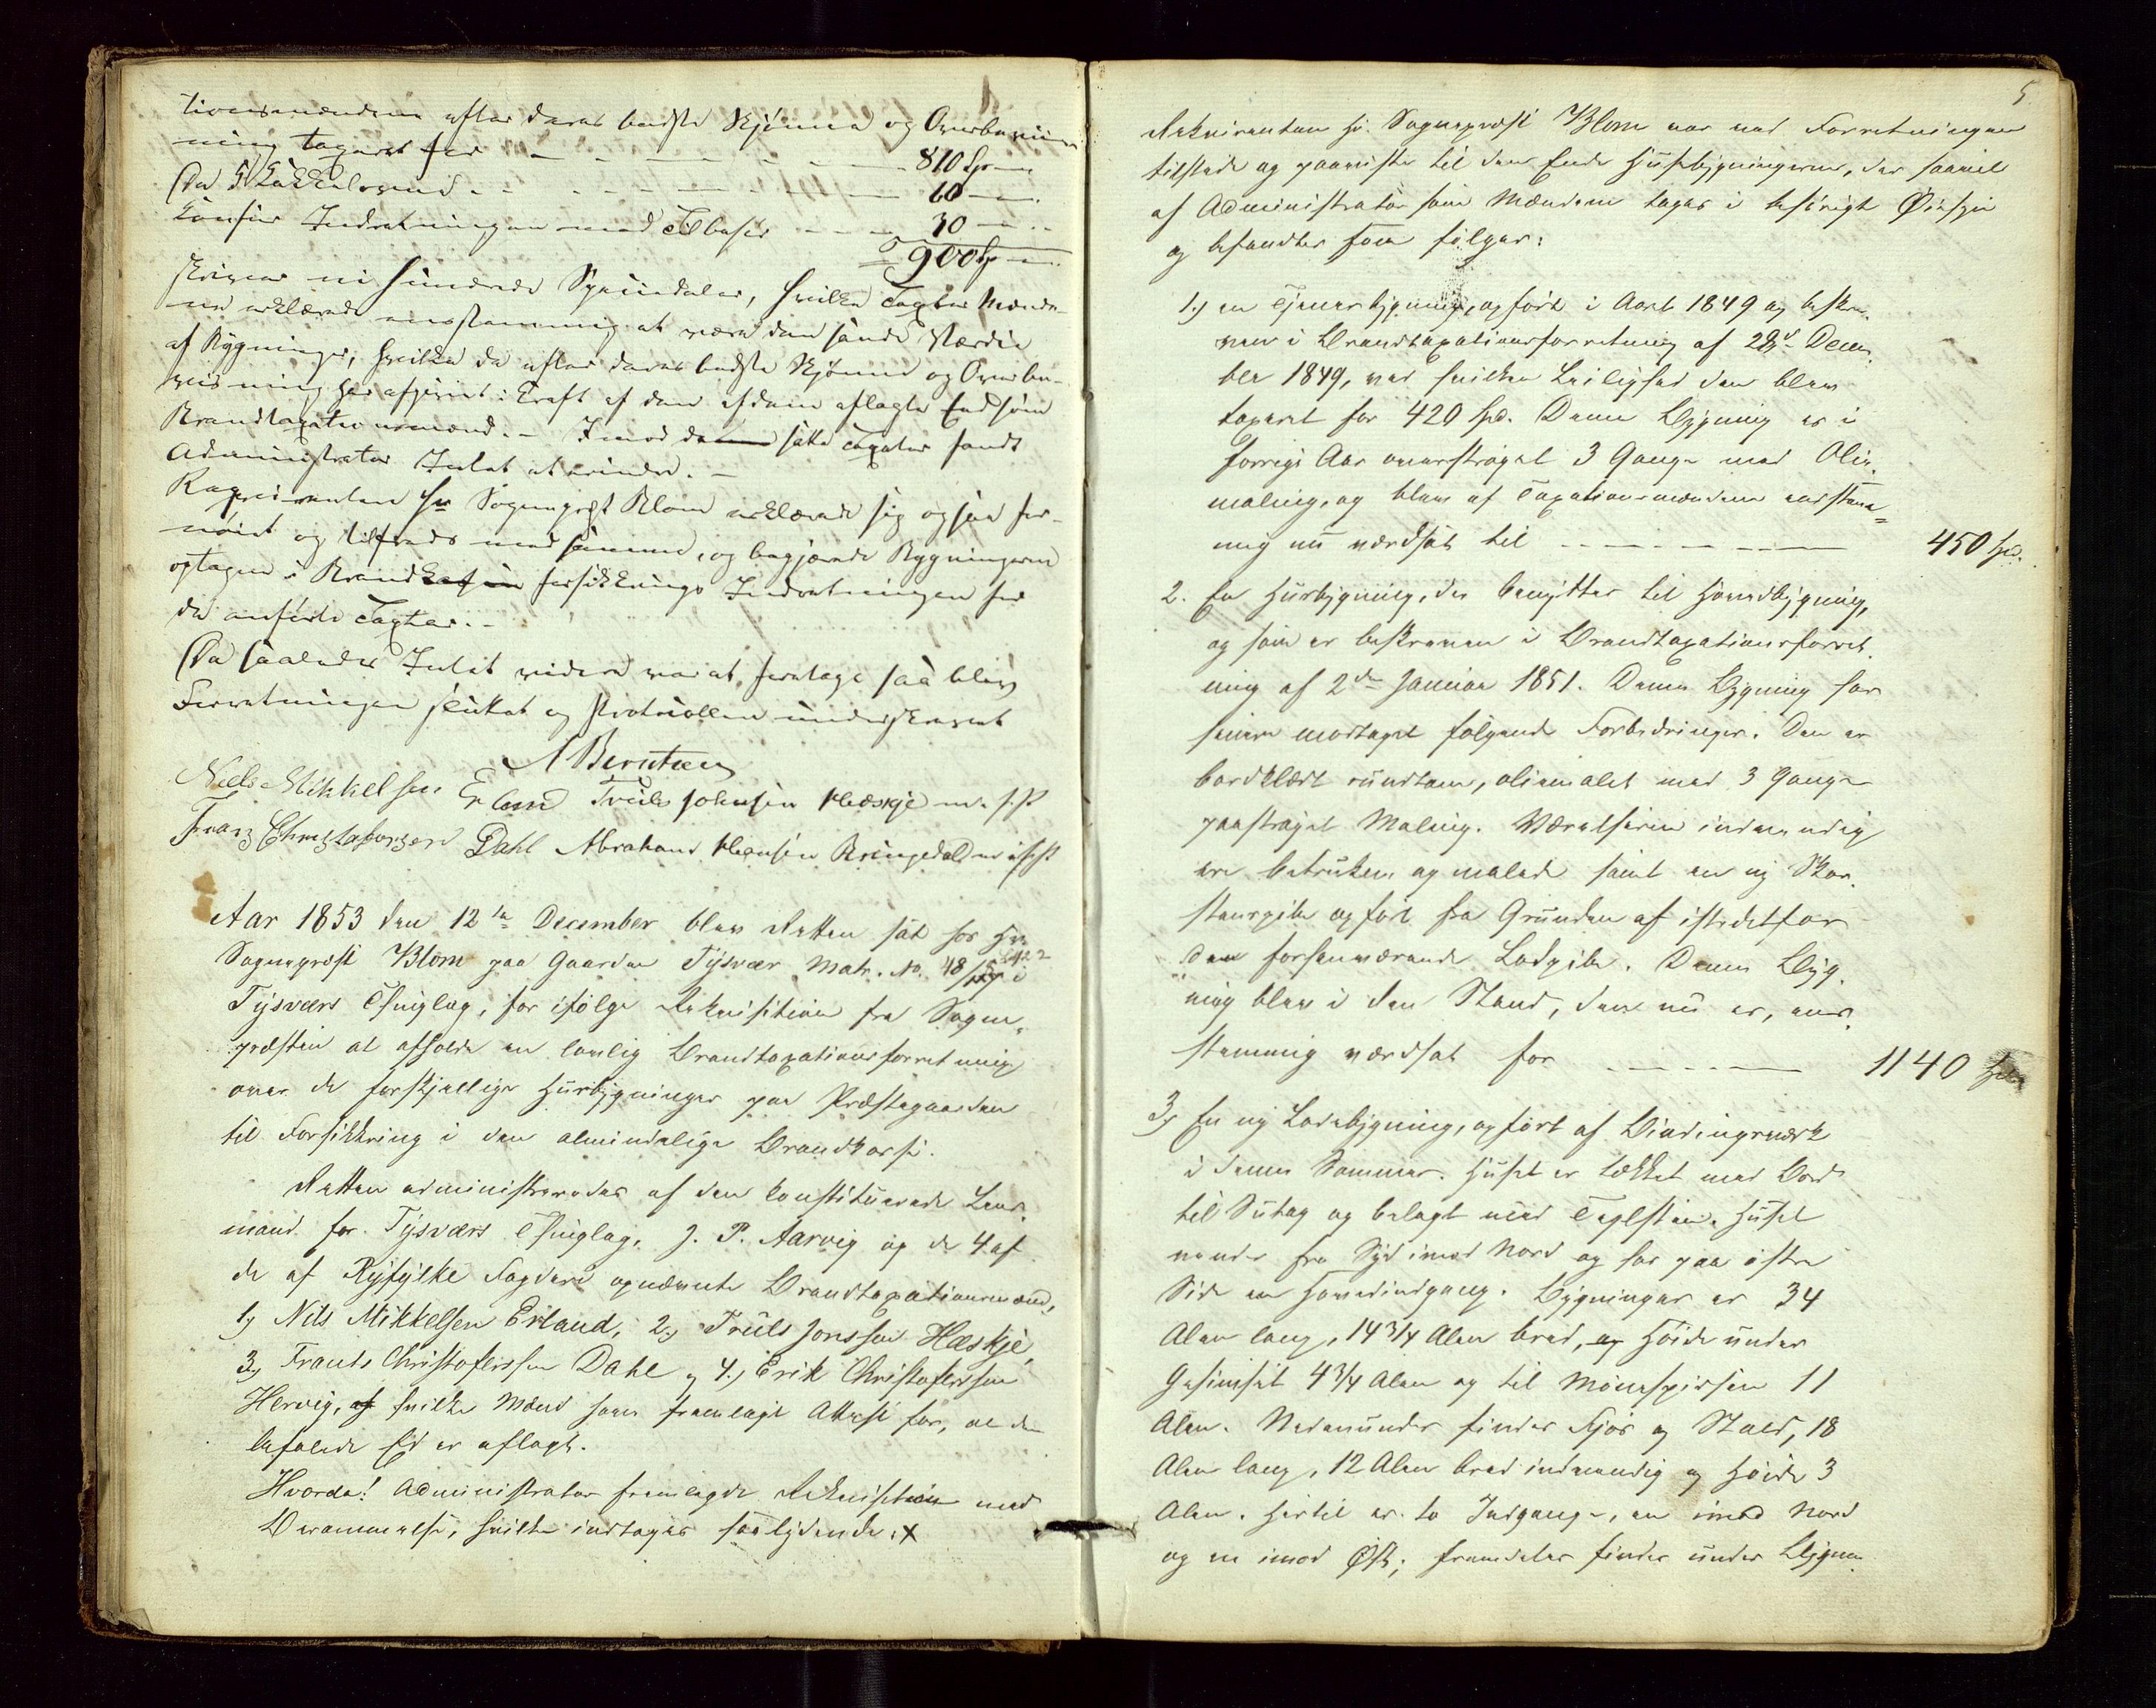 tionsmændene efter deres bedste Skjønnd og Overbeviis
ning taxeret for - - - - - - 810 Sp -
Da 5 Kakkelovne - - - - - - 60 -
Comfur Indretningen med Tilbehør - - - 30 -
900 Sp -
skriver ni Hundrede Speciedaler, hvilken Taxt Mænde-
ne erklærede eenstemmig at være den sande Værdie
af Bygninger, hvilke de efter deres bedste Skjønnd og Overbe-
viisning har afgivet i Kraft af den af dem aflagte Eed som
Brandtaxationsmænd. - Imod den satte Taxter fandt
Administrator Intet at erindre. -
Requirenten Hr Sognepræst Blom erklærede sig ogsaa for-
nøiet og tilfreds med samme, og begjærede Bygningerne
optagen i Brandforsikkrings Indretningen for
de anførte Taxter. -
Da saaledes Intet videre var at foretage saa blev
Forretningen sluttet og Protocollen underskrevet
A Berntsen
Niels Mikkelsen Erland Truls Johnsen Hæskje m. f. P
Franz Christofersen Dahl Abraham Hansen Ringedal m i f P
Aar 1853 den 12te December blev Retten sat hos Hr.
Sognepræst Blom paa Gaarden Tysvær Matr. No. 48 i
Tysværs Thinglag, for ifølge Rekvisition fra Sogne-
præsten at afholde en lovlig Brandtaxationsforretning
over de forskjellige Huusbygninger paa Præstegaarden
til Forsikkring i den almindelige Brandkasse.
Retten administreredes af den konstituerede Lens-
mand for Tysværs Thinglag, J. P. Aarvig og de 4 af
de af Ryfylke Fogderi opnævnte Brandtaxationsmænd,
1.) Nils Mikkelsen Erland, 2.) Truls Jonssen Hæskje,
3.) Frants Christoferssen Dahl og 4.) Erik Christoferssen
Hervig, af hvilke Mænd haves fremlagt Attest for, at den
befalede Ed er aflagt.
Hvorda! Administrator fremlagde Rekvisition med
Berammelse, hvilke indtages saalydende: x
5
Rekvirenten Hr. Sognepræst Blom var ved Forretningen
tilstede og paaviste til den Ende Huusbygningerne, der saavel
af Administrator som Mændene toges i behørigt Øiesyn
og befandtes som følger:
1.) en Tjenerbygning, opført i Aaret 1849 og beskre-
ven i Brandtaxationsforretning af 28de Decem-
ber 1849, ved hvilken Leilighed den blev
taxeret for 420 Spd. Denne Bygning er i
forrige Aar overstrøget 3 Gange med Olie-
maling, og blev af Taxationsmændene eenstem-
mig nu værdsat til - - - - 450 Spd.
2. En Huusbygning, der benyttes til Hovedbygning,
og som er beskreven i Brandtaxationsforret-
ning af 2den Januar 1851. Denne Bygning har
senere modtaget følgende Forbedringer. Den er
bordklædt rundtom, oliemalet med 3 Gange
paastrøget Maling. Værelserne indvendig
ere betrukne og malede samt en ny Skor-
steenspibe opført fra Grunden af istedetfor
den forhenværende Ladpibe. Denne Byg-
ning blev i den Stand, den nu er, een-
stemmig værdsat for - - - - 1140 Spd
3.) En ny Ladebygning, opført af Bindingsværk
i denne Sommer. Huset er tækket med Bord
til Sutag og belagt med Teglsten. Huset
vender fra Syd imod Nord og har paa østre
Side en Hovedindgang. Bygningen er 34
Alen lang, 14 3/4 Alen bred, og Høide under
Gesimset 4 3/4 Alen og til Mønespidsen 11
Alen. Nedenunder findes Fjøs og Stald, 18
Alen lang, 12 Alen bred indvendig og Høide 3
Alen. Hertil er to Indgange, en imod Nord
og en imod Øst; fremdeles findes under Bygnin-